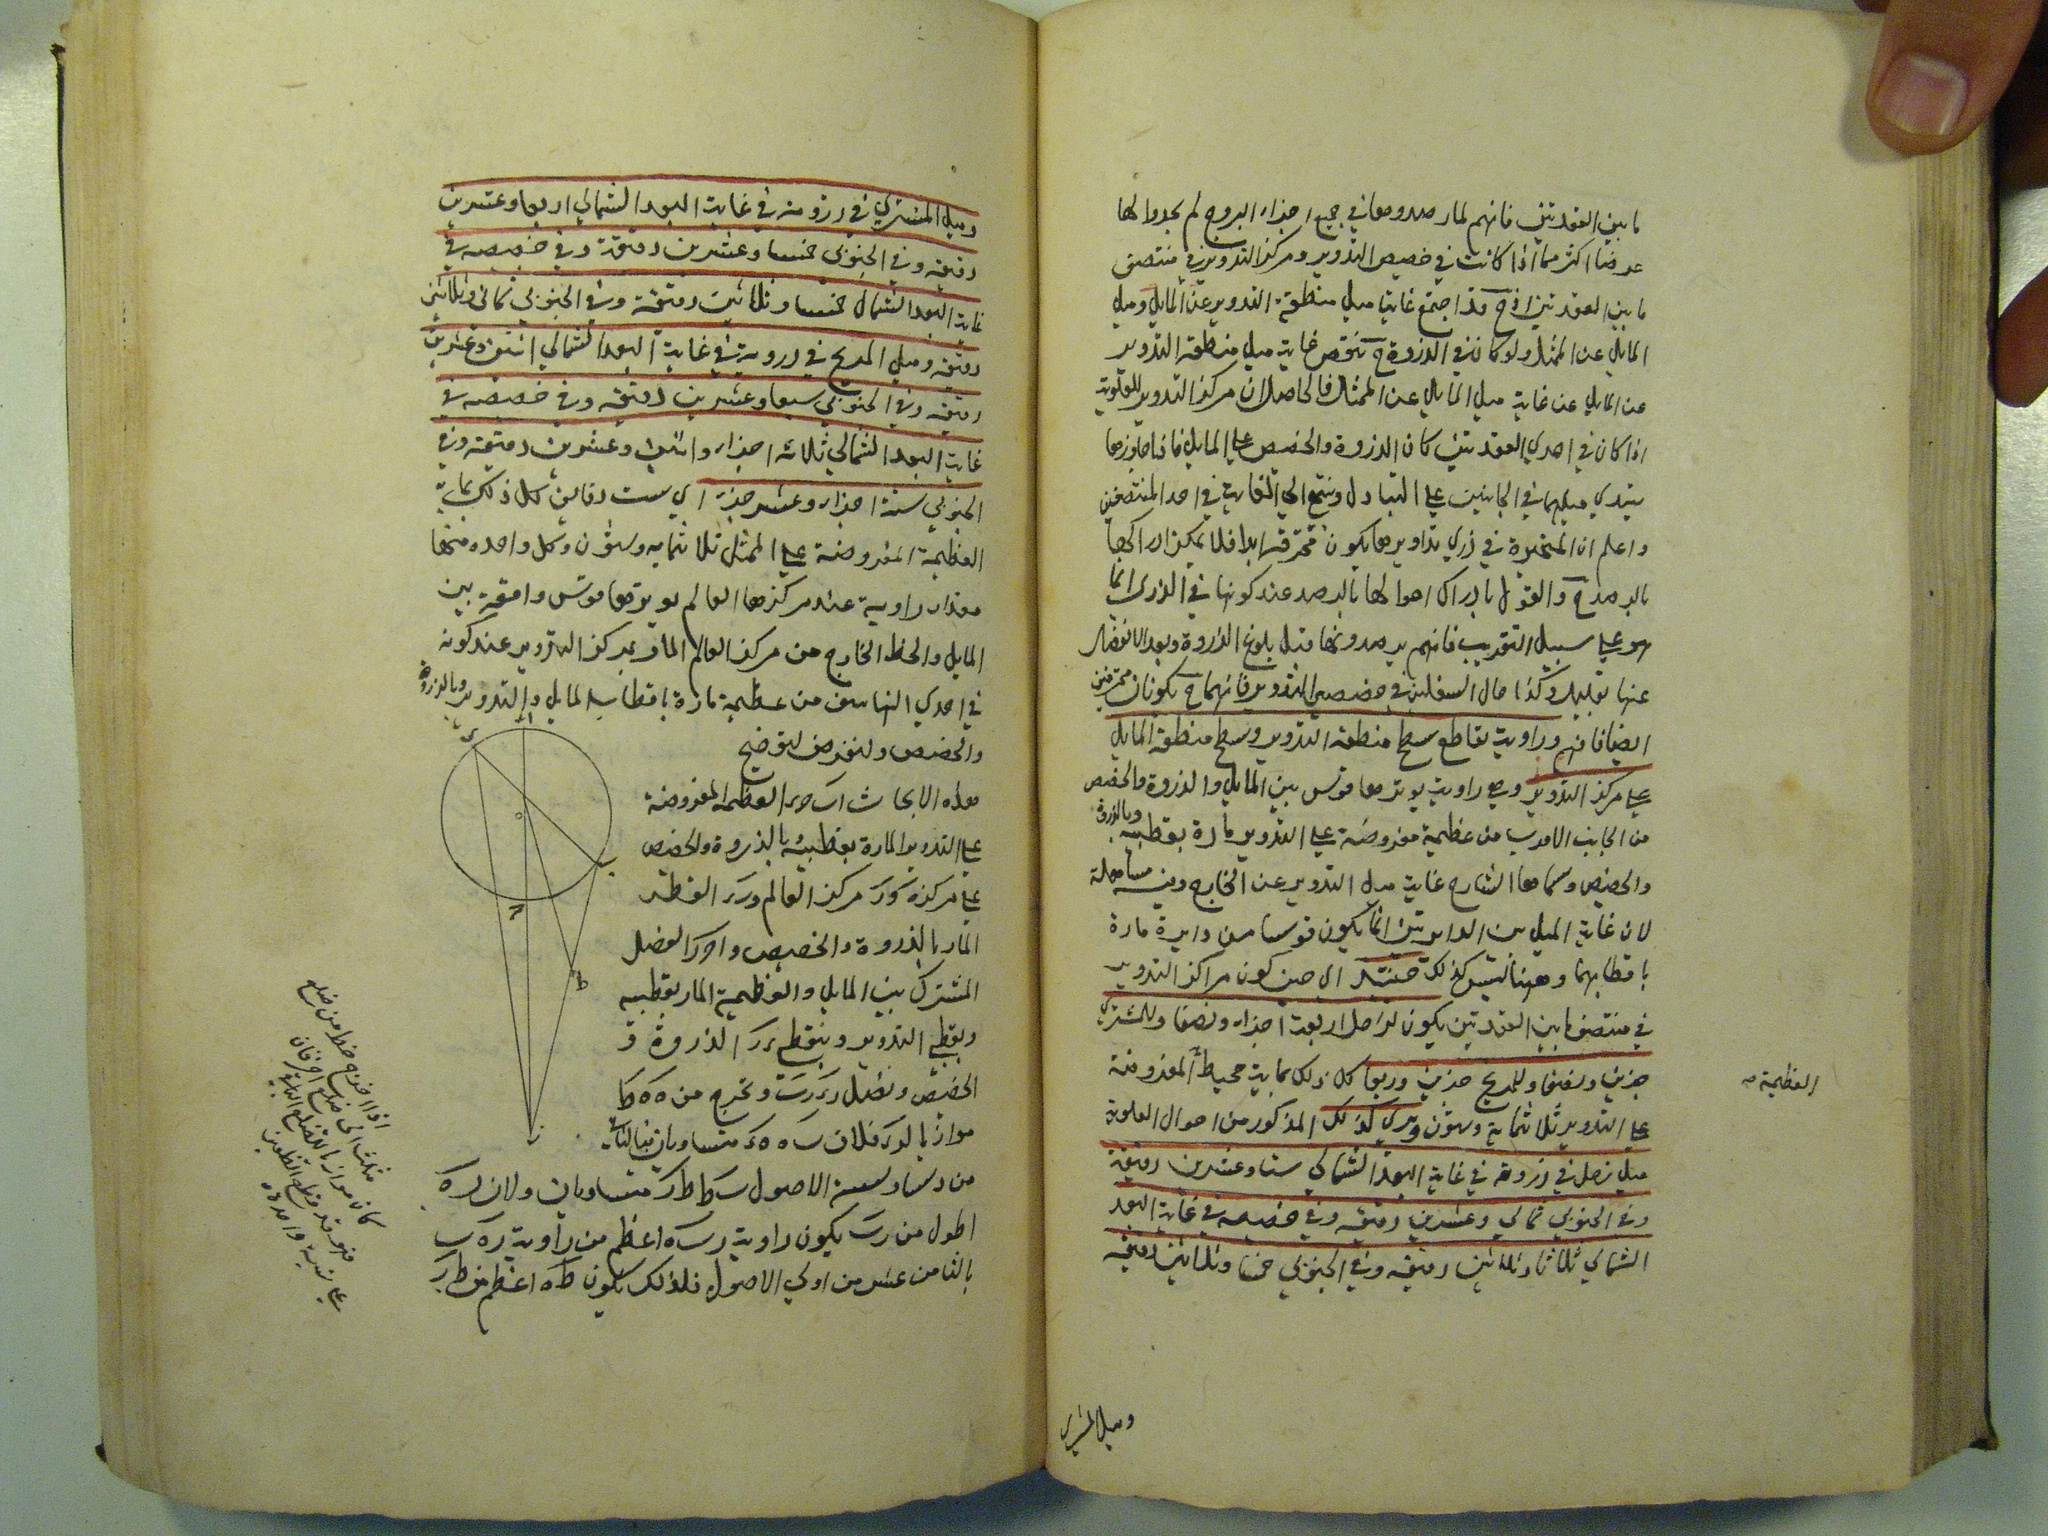 ما بين العقدتين فانهم لما رصدوها في جميع اجزاء البروج لم يجدوا لها
عرضا اكثر مما اذا كانت في حضيض التدوير ومركز التدوير في منتصف
ما بين العقدتين اذ ح قد اجتمع غايتا ميل منطقة التدوير عن المايل وميل
المايل عن الممثل ولو كان في الذروة ح تنقص غاية ميل منطقة التدوير
عن المايل عن غاية ميل المايل عن الممثل فالحاصل ان مركز التدوير للعلوية
اذا كان في احدي العقدتين كان الذروة والحضيض علي المايل فاذا جاوزها
يبتدي ميلهما في الجانبين علي التبادل وينتهي الي الغاية في احد المنتصفين
واعلم ان المتحيرة في ذري تداويرها يكون محترقة ابدا فلا يمكن ادراكها
بالرصد ح والقول بادراك احوالها بالرصد عند كونها في الذري انما
هو علي سبيل التقريب فانهم يرصدونها قبل بلوغ الذروة وبعد الانفصال
عنها بقليل وكذا حال السفلين في حضيض التدوير فانهما ح يكونان محترقين
ايضا فافهم وزاوية تقاطع سطح منطقة التدوير وسطح منطقة المايل
علي مركز التدوير وهي زاوية يوترها قوس بين المايل والذروة والحضيض
من الجانب الاقرب من عظيمة مفروضة علي التدوير مارة بقطبيه وبالذروة
والحضيض وسماها الشارح غاية ميل التدوير عن الخارج وفيه مساهلة
لان غاية الميل بين الدايرتين انما يكون قوسا من دايرة مارة
باقطابهما وههنا ليس كذلك حينئذ اي حين كون مراكز التدوير
في منتصف ما بين العقدتين يكون لزحل اربعة اجزاء ونصفا وللمشتري
جزئين ونصفا وللمريخ جزئين وربعا كل ذلك بما به محيط المفروضة
العظيمة صح
علي التدوير ثلاثمائة وستون ويري كذلك المذكور من احوال العلوية
ميل زحل في ذروته في غاية البعد الشمالي ستا وعشرين دقيقة
وفي الجنوبي ثماني وعشرين دقيقة وفي حضيضه في غاية البعد
الشمالي ثلاثا وثلاثين دقيقة وفي الجنوبي خمسا وثلاثين دقيقة
وميل المشتري
وميل المشتري في ذروته في غاية البعد الشمالي اربعا وعشرين
دقيقة وفي الجنوبي خمسا وعشرين دقيقة وفي حضيضه في
غاية البعد الشمالي خمسا وثلاثين دقيقة وفي الجنوبي ثماني وثلاثين
دقيقة وميل المريخ في ذروته في غاية البعد الشمالي اثنتين وعشرين
دقيقة وفي الجنوبي سبعا وعشرين دقيقة وفي حضيضه في
غاية البعد الشمالي ثلاثة اجزاء واثنين وعشرين دقيقة وفي
الجنوبي ستة اجزاء وعشر جزء اي ست دقايق كل ذلك بما به
العظيمة المفروضة علي الممثل ثلاثمايه وستون وكل واحده منها
مقدار زاوية عند مركزها العالم يوترها قوس واقعة بين
المايل والخط الخارج من مركز العالم المار بمركز التدوير عند كونه
في احدي النهايتين من عظيمة مارة باقطاب المايل والتدوير وبالذروة
والحضيض ولنفرض لتوضيح
هذه الابحاث ا ب ح ء العظيمة المفروضة
علي التدوير المارة بقطبيه بالذروة والحضيض
علي مركز ه و ر مركز العالم و ب ء القطر
المار بالذروة والحضيض وا ح ر الفصل
المشترك بين المايل والعظيمة المار بقطبيه
وبقطبي التدوير وبنقطتي ب ء الذروة و
الحضيض ونصل ر ء ر ب ونخرج من ه ه ط
موازيا لء ر فلان ب ه ه ء متساويان
من الاصول ب ط ط ر متساويان ولان ر ه
اطول من ر ب يكون زاوية ر ب ه اعظم من زاوية ر ه ب
بالثامن عشر من اولي الاصول فلذلك يكون ط ه اعظم من ط ر
اذا اخرج خط من ضلع
مثلث الي ضلع اخر فان
كان موازيا للضلع الباقية
فهو قد قطع الضلعين
علي نسبة واحدة